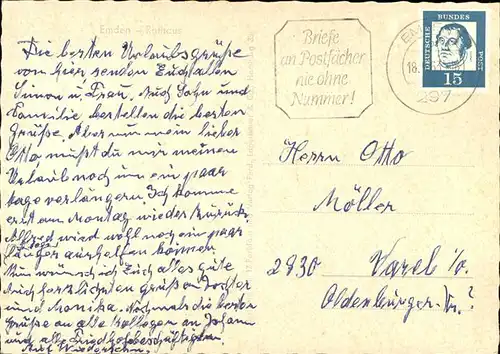 Emden - Rathaus
Die besten Urlaubsgrüße
von hier senden Euch allen
Simon u. Frau. Auch Sohn und
Familie bestellen die besten
Grüße. Aber nun mein lieber
Otto, mußt du mir meinen
Urlaub noch um ein paar
tage verlängern. Ich komme
erst am Montag wieder zurück.
Alfred wird wohl noch ein paar
Tage
länger aushelfen können.
Nun wünsch ich Euch alles gute
Auch herzlichsten grüßen Tochter
und Monika. Nochmals die besten
Grüße an alle Kollegen an Johann
und alle Friedhofbeschäftigten.
Auf Wiedersehn
Briefe
an Postfächer
nie ohne
Nummer!
18.
297
DEUTSCHE BUNDESPOST
15
Herrn Otto
Möller
2930 Varel i/o.
Oldenburger-